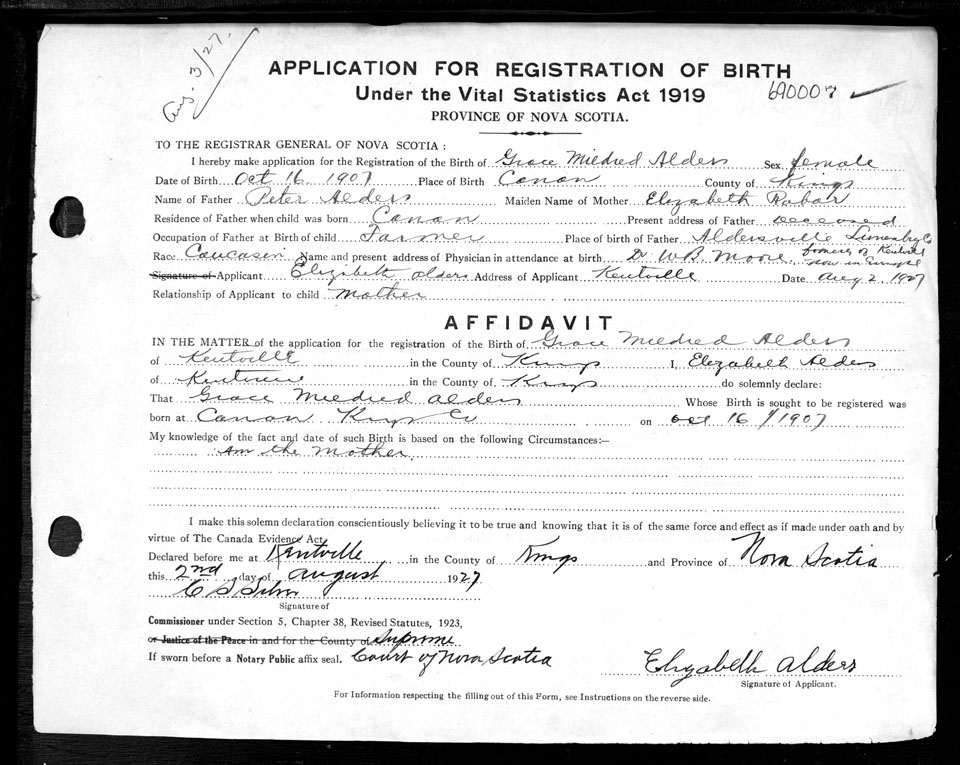 Aug. 3/27.
APPLICATION FOR REGISTRATION OF BIRTH
Under the Vital Statistics Act 1919
690007
PROVINCE OF NOVA SCOTIA.
TO THE REGISTRAR GENERAL OF NOVA SCOTIA:
I hereby make application for the Registration of the Birth of Grace Mildred Alders Sex female
Date of Birth Oct 16 1907 Place of Birth Canan County of Kings
Name of Father Peter Alders Maiden Name of Mother Elizabeth Robar
Residence of Father when child was born Canan Present address of Father Deceased
Occupation of Father at Birth of child Farmer Place of birth of Father Aldersville Lunenburg Co
Race Caucasin Name and present address of Physician in attendance at birth Dr W B Moore formerly of Kentville now in
Signature of Applicant Elizabeth Alders Address of Applicant Kentville Date Aug 2 1927
Relationship of Applicant to child Mother
AFFIDAVIT
IN THE MATTER of the application for the registration of the Birth of Grace Mildred Alders
of Kentville in the County of Kings I, Elizabeth Alders
of Kentville in the County of Kings do solemnly declare:
That Grace Mildred Alders Whose Birth is sought to be registered was
born at Canan Kings Co on Oct 16 / 1907
My knowledge of the fact and date of such Birth is based on the following Circumstances:—
Am the Mother.
I make this solemn declaration conscientiously believing it to be true and knowing that it is of the same force and effect as if made under oath and by
virtue of The Canada Evidence Act.
Declared before me at Kentville in the County of Kings and Province of Nova Scotia
this 2nd day of August 1927
C S
Signature of
Commissioner under Section 5, Chapter 38, Revised Statutes, 1923,
or Justice of the Peace in and for the County of Supreme
If sworn before a Notary Public affix seal. Court of Nova Scotia
Elizabeth Alders
Signature of Applicant.
For Information respecting the filling out of this Form, see Instructions on the reverse side.